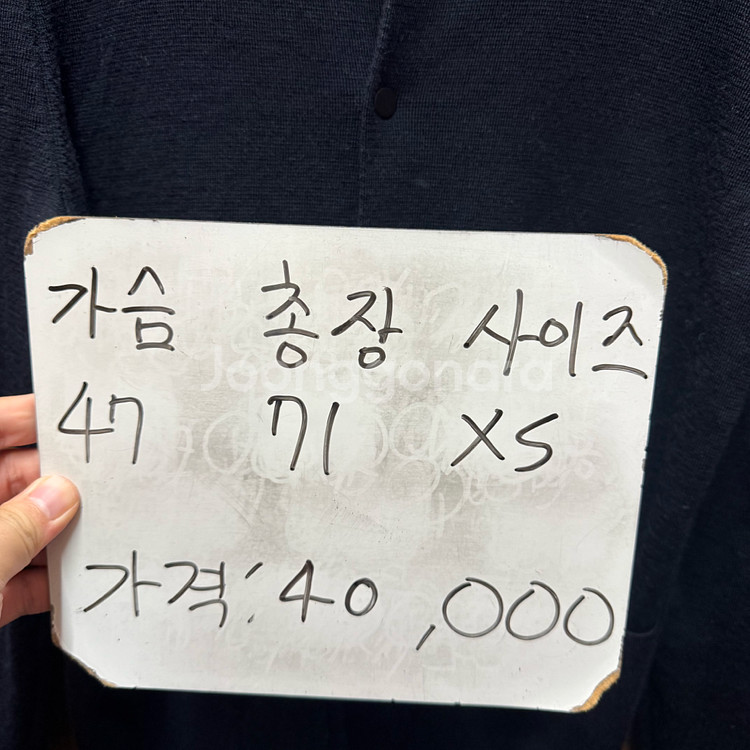 가슴 총장 사이즈
47 71 XS
가격: 40,000
Joonggonara